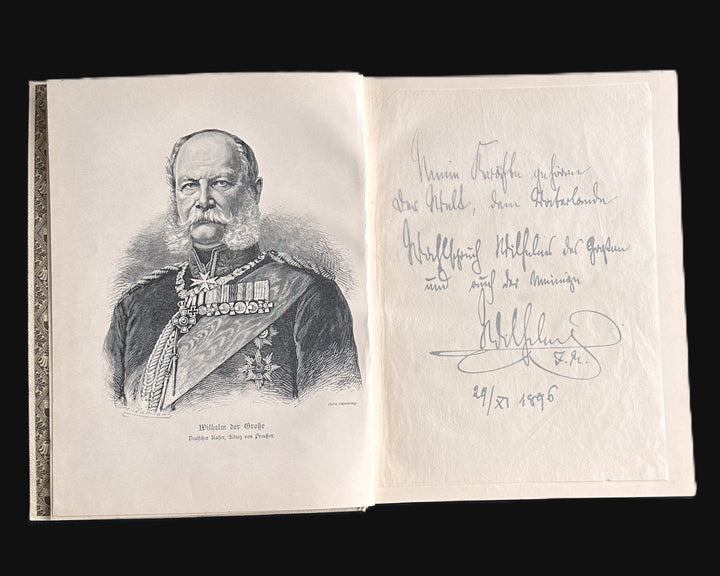 Wilhelm der Große
Deutscher Kaiser, König von Preußen
Meine Kräfte gehören
der Welt, dem Vaterlande
Wahlspruch Wilhelms des Großen
und auch der meinige
Wilhelm
I. R.
29/XI 1896